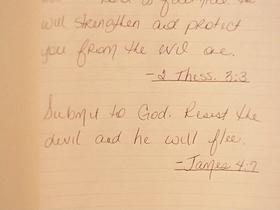 will strengthen and protect
you from the evil one.
-2 Thess. 3:3
Submit to God. Resist the
devil and he will flee.
-James 4:7